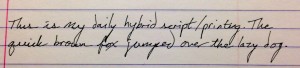 This is my daily hybrid script/printing. The
quick brown fox jumped over the lazy dog.